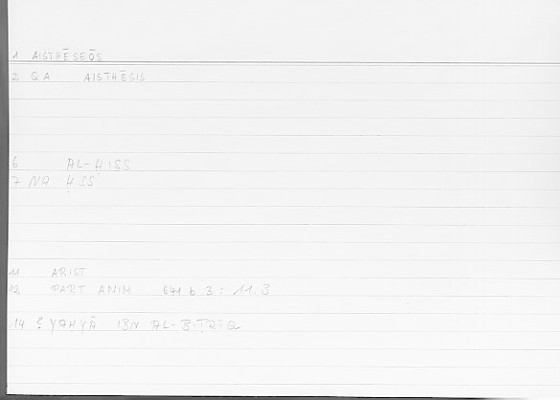 1 AISTHĒSEŌS
2 QA AISTHĒSIS
6 AL-ḤISS
7 NA ḤSS
11 ARIST
12 PART ANIM 641 b 3 : 11.3
14 YAḤYĀ IBN AL-BIṬRĪQ